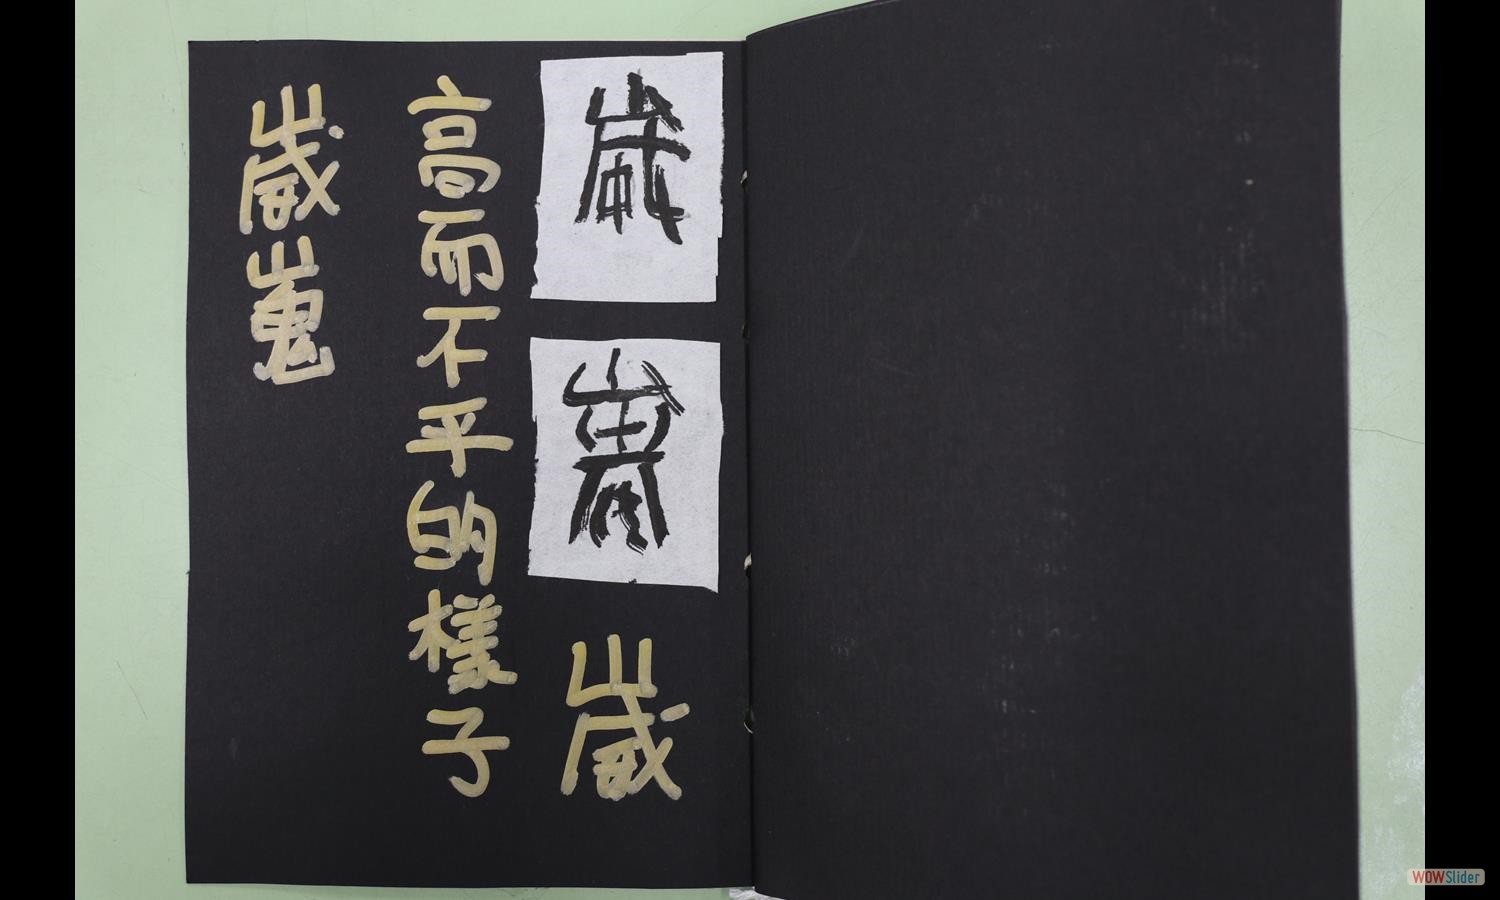 崴嵬崴
高而不平的樣子
崴嵬
WOWSlider